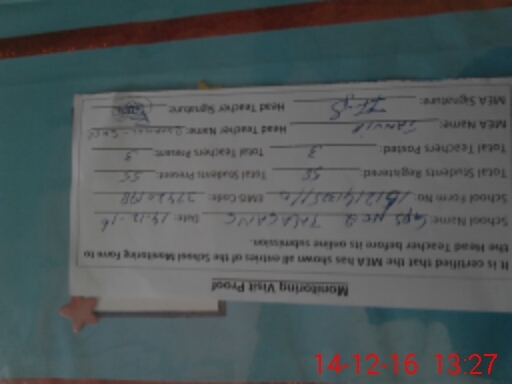 Monitoring Visit Proof
It is certified that the MEA has shown all entries of the School Monitoring Form to
the Head Teacher before its online submission.
School Name: GPS NO 2 TALAGANG Date: 14-12-16
School Form No: EMIS Code:
Students Registered: 55 Total Students Present: 55
Total Teachers Posted: 3 Total Teachers Present: 3
MEA Name: Head Teacher Name:
MEA Signature: Head Teacher Signature:
14-12-16 13:27